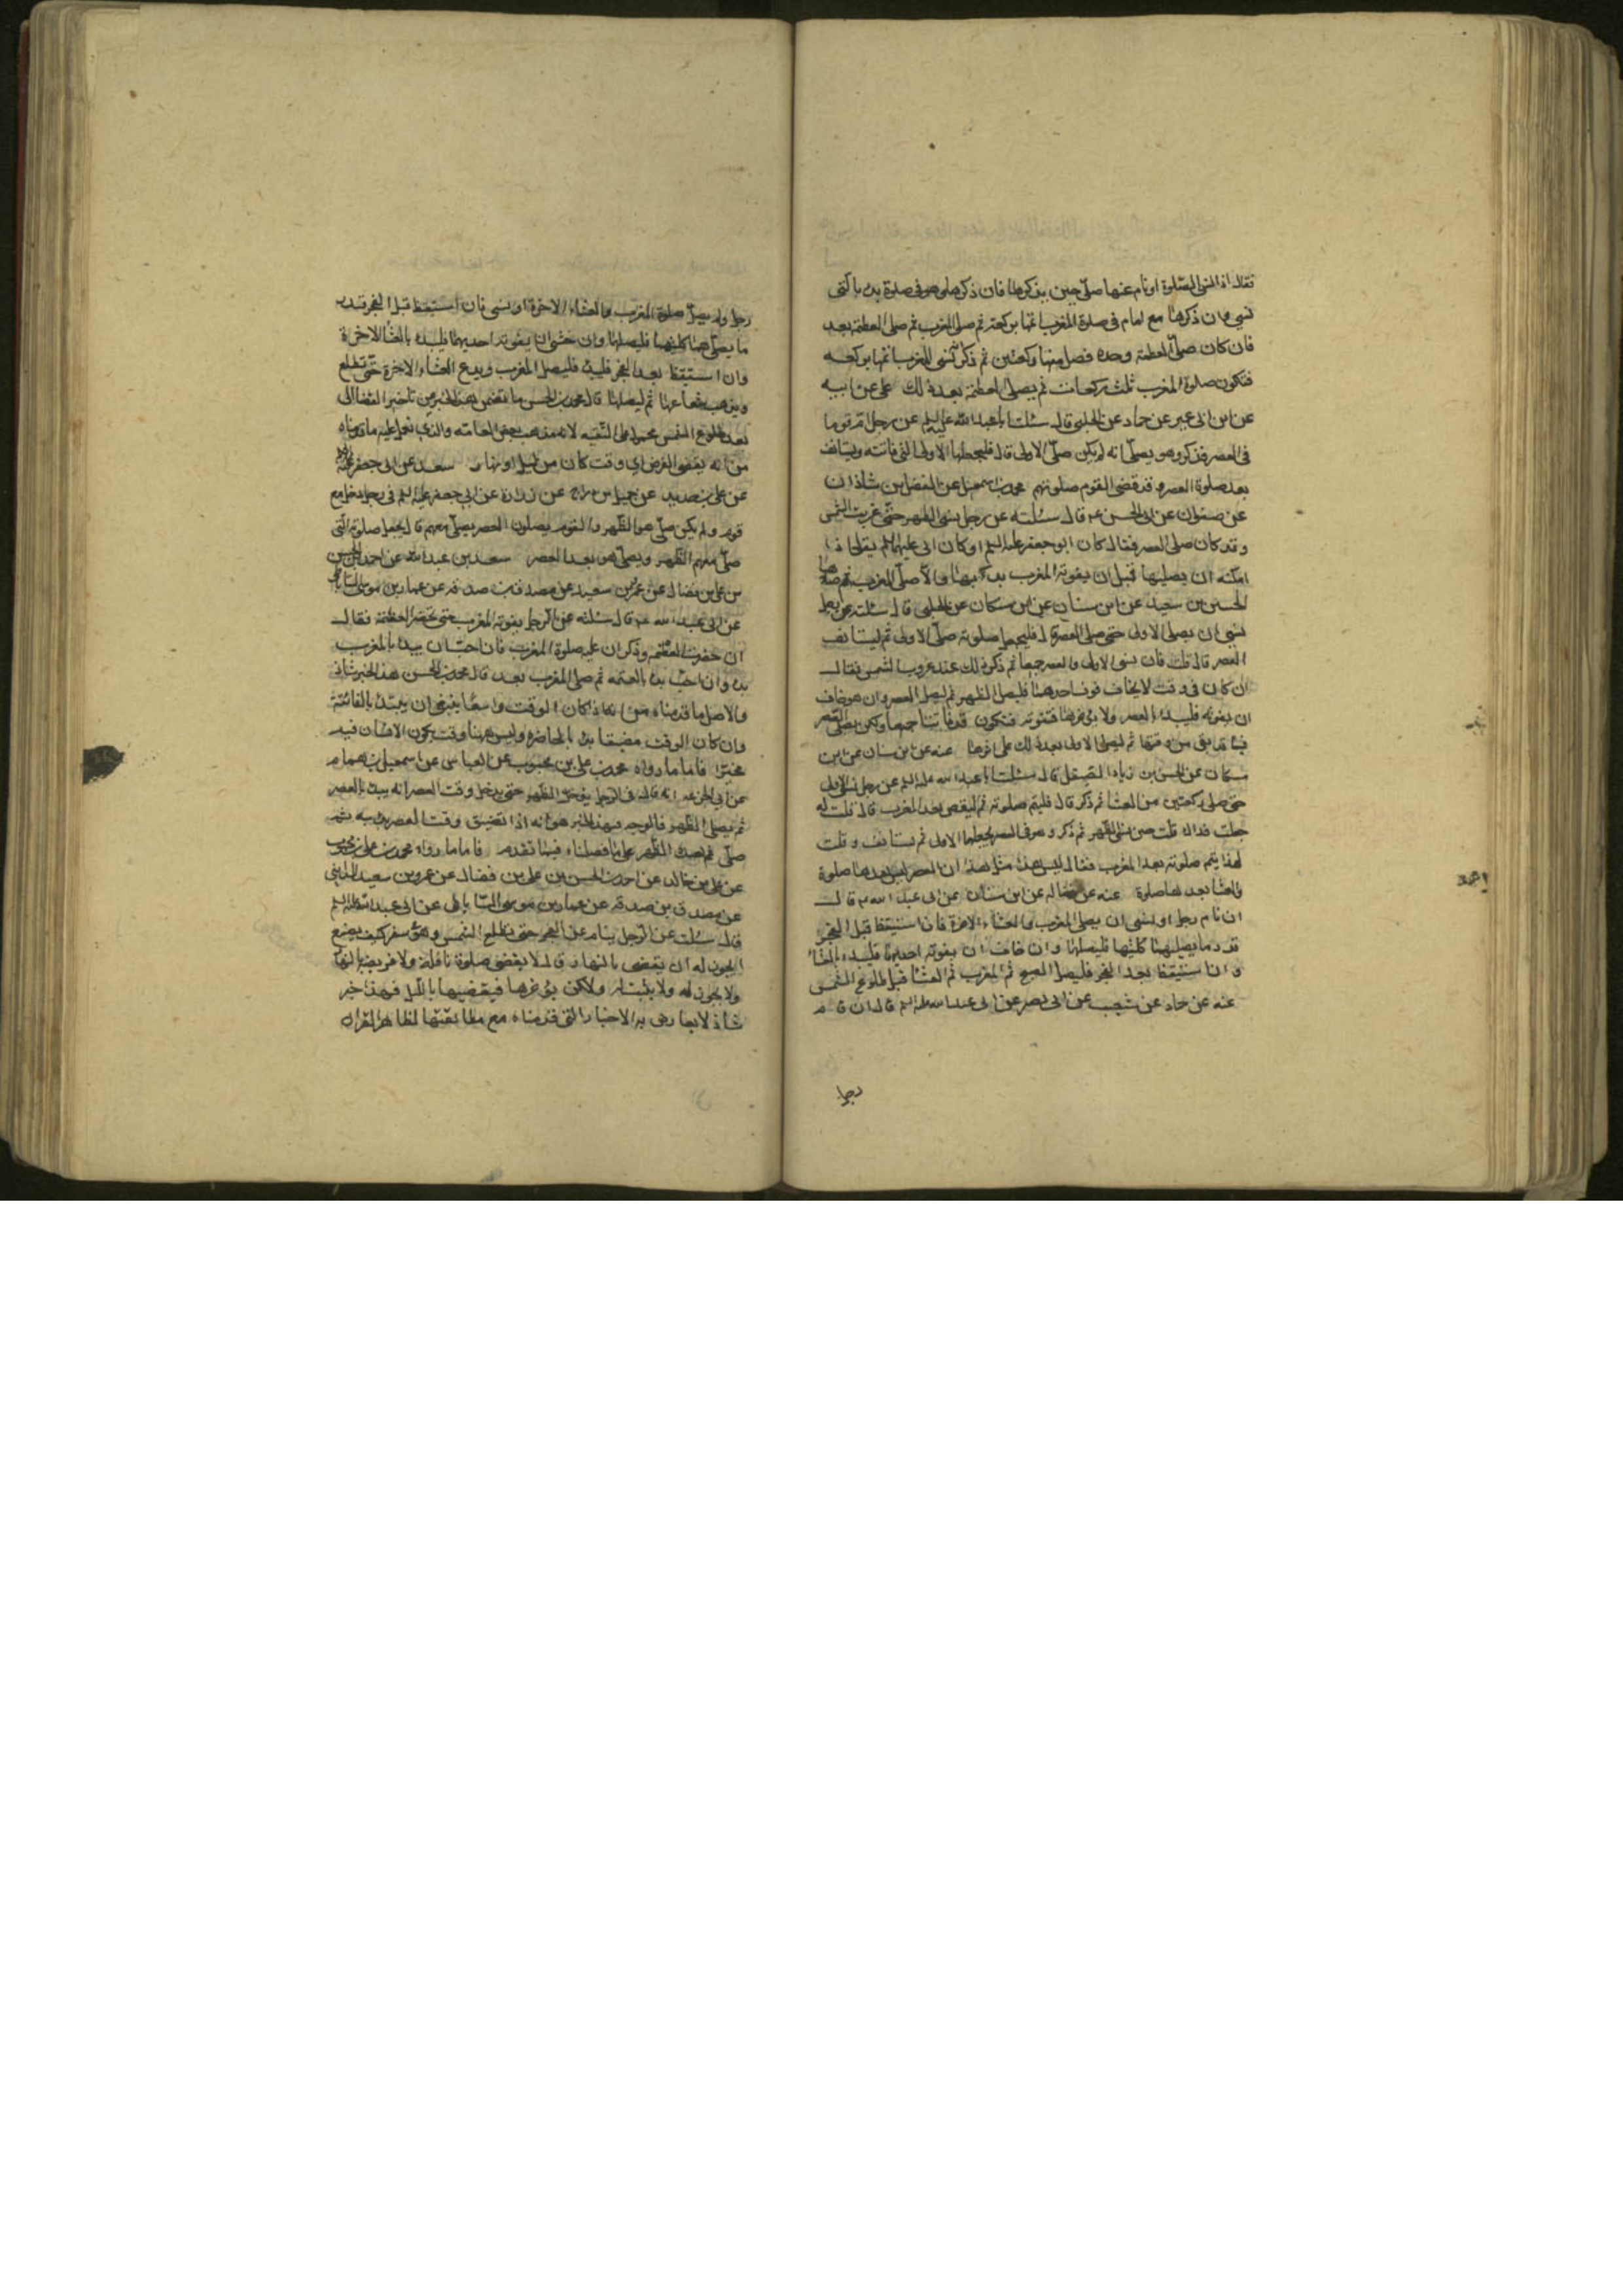 فقال اذا نسى الصلوة او نام عنها صلى حين يذكرها فان ذكرها وهو في صلوة بدء بالتى
نسى وان ذكرها مع امام في صلوة المغرب اتمها بركعة ثم صلى المغرب ثم صلى العتمة بعد
فان كان صلى العتمة وحده فصلى منها ركعتين ثم ذكر انه نسى المغرب اتمها بركعه
فتكون صلوة المغرب ثلث ركعات ثم يصلى العتمة بعد ذلك على عن ابيه
عن ابن ابى عمير عن حماد عن الحلبي قال سئلت ابا عبد الله عليه السلم عن رجل ام قوما
في العصر فذكر وهو يصلى انه لم يكن صلى الاولى قال فليجعلها الاولى التى فاتته ويستانف
بعد صلوة العصر وقد قضى القوم صلوتهم محمد بن اسمعيل عن الفضل بن شاذان
عن صفوان عن ابى الحسن عم قال سئلته عن رجل نسى الظهر حتى غربت الشمس
وقد كان صلى العصر فقال كان ابو جعفر عليه السلم او كان ابى عليه السلم يقول اذا
امكنه ان يصليها قبل ان يفوته المغرب بدء بها والا صلى المغرب ثم صلاها
الحسين بن سعيد عن ابن سنان عن ابن مسكان عن الحلبى قال سئلته عن رجل
نسى ان يصلى الاولى حتى صلى العصر قال فليجعل صلوته صلى الاولى ثم ليستانف
العصر قال قلت فان نسى الاولى والعصر جميعا ثم ذكر ذلك عند غروب الشمس فقال
ان كان في وقت لا يخاف فوت احدهما فليصل الظهر ثم ليصل العصر وان هو خاف
ان يفوته فليبدء بالعصر ولا يؤخرها فتفوته فتكون قد فاتتا جميعا ولكن يصلى العصر
فيما قد بقى من وقتها ثم ليصلى الاولى بعد ذلك على اثرها عنه عن ابن سنان عن ابن
مسكان عن الحسن بن زياد الصيقل قال سئلت ابا عبد الله عليه السلم عن رجل نسى الاولى
حتى صلى ركعتين من العشا ثم ذكر قال فليتم صلوته ثم ليقض بعد المغرب قال قلت له
جعلت فداك قلت حين نسى الظهر ثم ذكر وهو في العصر يجعلها الاولى ثم يستانف وقلت
لهذا يتم صلوته بعد المغرب فقال ليس هذا مثل هذا ان العصر ليس بعدها صلوة
والعشا بعدها صلوة عنه عن فضاله عن ابن سنان عن ابى عبد الله عم قال
ان نام رجل او نسى ان يصلى المغرب والعشاء الاخرة فان استيقظ قبل الفجر
قدر ما يصليهما كليهما فليصلهما وان خاف ان يفوته احديهما فليبدء بالعشا
وان استيقظ بعد الفجر فليصل الصبح ثم المغرب ثم العشا قبل طلوع الشمس
عنه عن حماد عن شعيب عن ابى بصير عن ابى عبد الله عليه السلم قال ان نام
رجل
رجل ولم يصل صلوة المغرب والعشاء الاخرة او نسى فان استيقظ قبل الفجر قدر
ما يصليهما كليهما فليصلهما وان خشى ان يفوته احديهما فليبدء بالعشا الاخرة
وان استيقظ بعد الفجر فليبدء فليصل المغرب ويدع العشاء الاخرة حتى تطلع
ويذهب شعاعها ثم ليصلها قال محمد بن الحسن ما تضمن هذين الخبرين تاخير القضا الى
بعد طلوع الشمس محمول على التقيه لانه مذهب بعض العامه والذى نعمل عليه ما قدمناه
من انه يقضى الفرض اى وقت كان من ليل او نهار سعد عن ابى جعفر
عن على بن حديد عن جميل بن دراج عن زرارة عن ابى جعفر عليه السلم في رجل دخل مع
قوم ولم يكن صلى هو الظهر والقوم يصلون العصر يصلى معهم قال يجعل صلوته التى
صلى معهم الظهر ويصلى هو بعد العصر سعد بن عبد الله عن احمد بن الحسن
بن على بن فضال عن عمرو بن سعيد عن مصدق بن صدقه عن عمار بن موسى الساباطى
عن ابى عبد الله عم قال سئلته عن الرجل يفوته المغرب حتى تحضر العتمة فقال
ان حضرت العتمه وذكر ان عليه صلوة المغرب فان احب ان يبدا بالمغرب
بدء وان احب بدء بالعتمه ثم صلى المغرب بعد قال محمد بن الحسن هذا الخبر شاذ
والاصل ما قدمناه من انه اذا كان الوقت واسعا ينبغى ان يبتدئ بالفائتة
وان كان الوقت مضيقا بدء بالحاضره وليس ههنا وقت يكون الانسان فيه
مخيرا فاما ما رواه محمد بن على بن محبوب عن العباس عن اسمعيل بن همام
عن ابى الحسن عم انه قال في الرجل يؤخر الظهر حتى يدخل وقت العصر انه يبدء بالعصر
ثم يصلى الظهر فالوجه في هذا الخبر هو انه اذا تضيق وقت العصر بدء به ثم
صلى بعده الظهر على ما فصلناه فيما تقدم فاما ما رواه محمد بن على بن محبوب
عن على بن خالد عن احمد بن الحسن بن على بن فضال عن عمرو بن سعيد المداينى
عن مصدق بن صدقه عن عمار بن موسى الساباطى عن ابى عبد الله عليه السلم
قال سئلت عن الرجل ينام عن الفجر حتى تطلع الشمس وهو في سفر كيف يصنع
ايجوز له ان يقضى بالنهار قال لا يقضى صلوة نافلة ولا فريضة بالنهار
ولا يجوز له ولا يثبت له ولكن يؤخرها فيقضيها بالليل فهذا خبر
شاذ لا يعارض به الاخبار التى قدمناه مع مطابقتها لظاهر القران